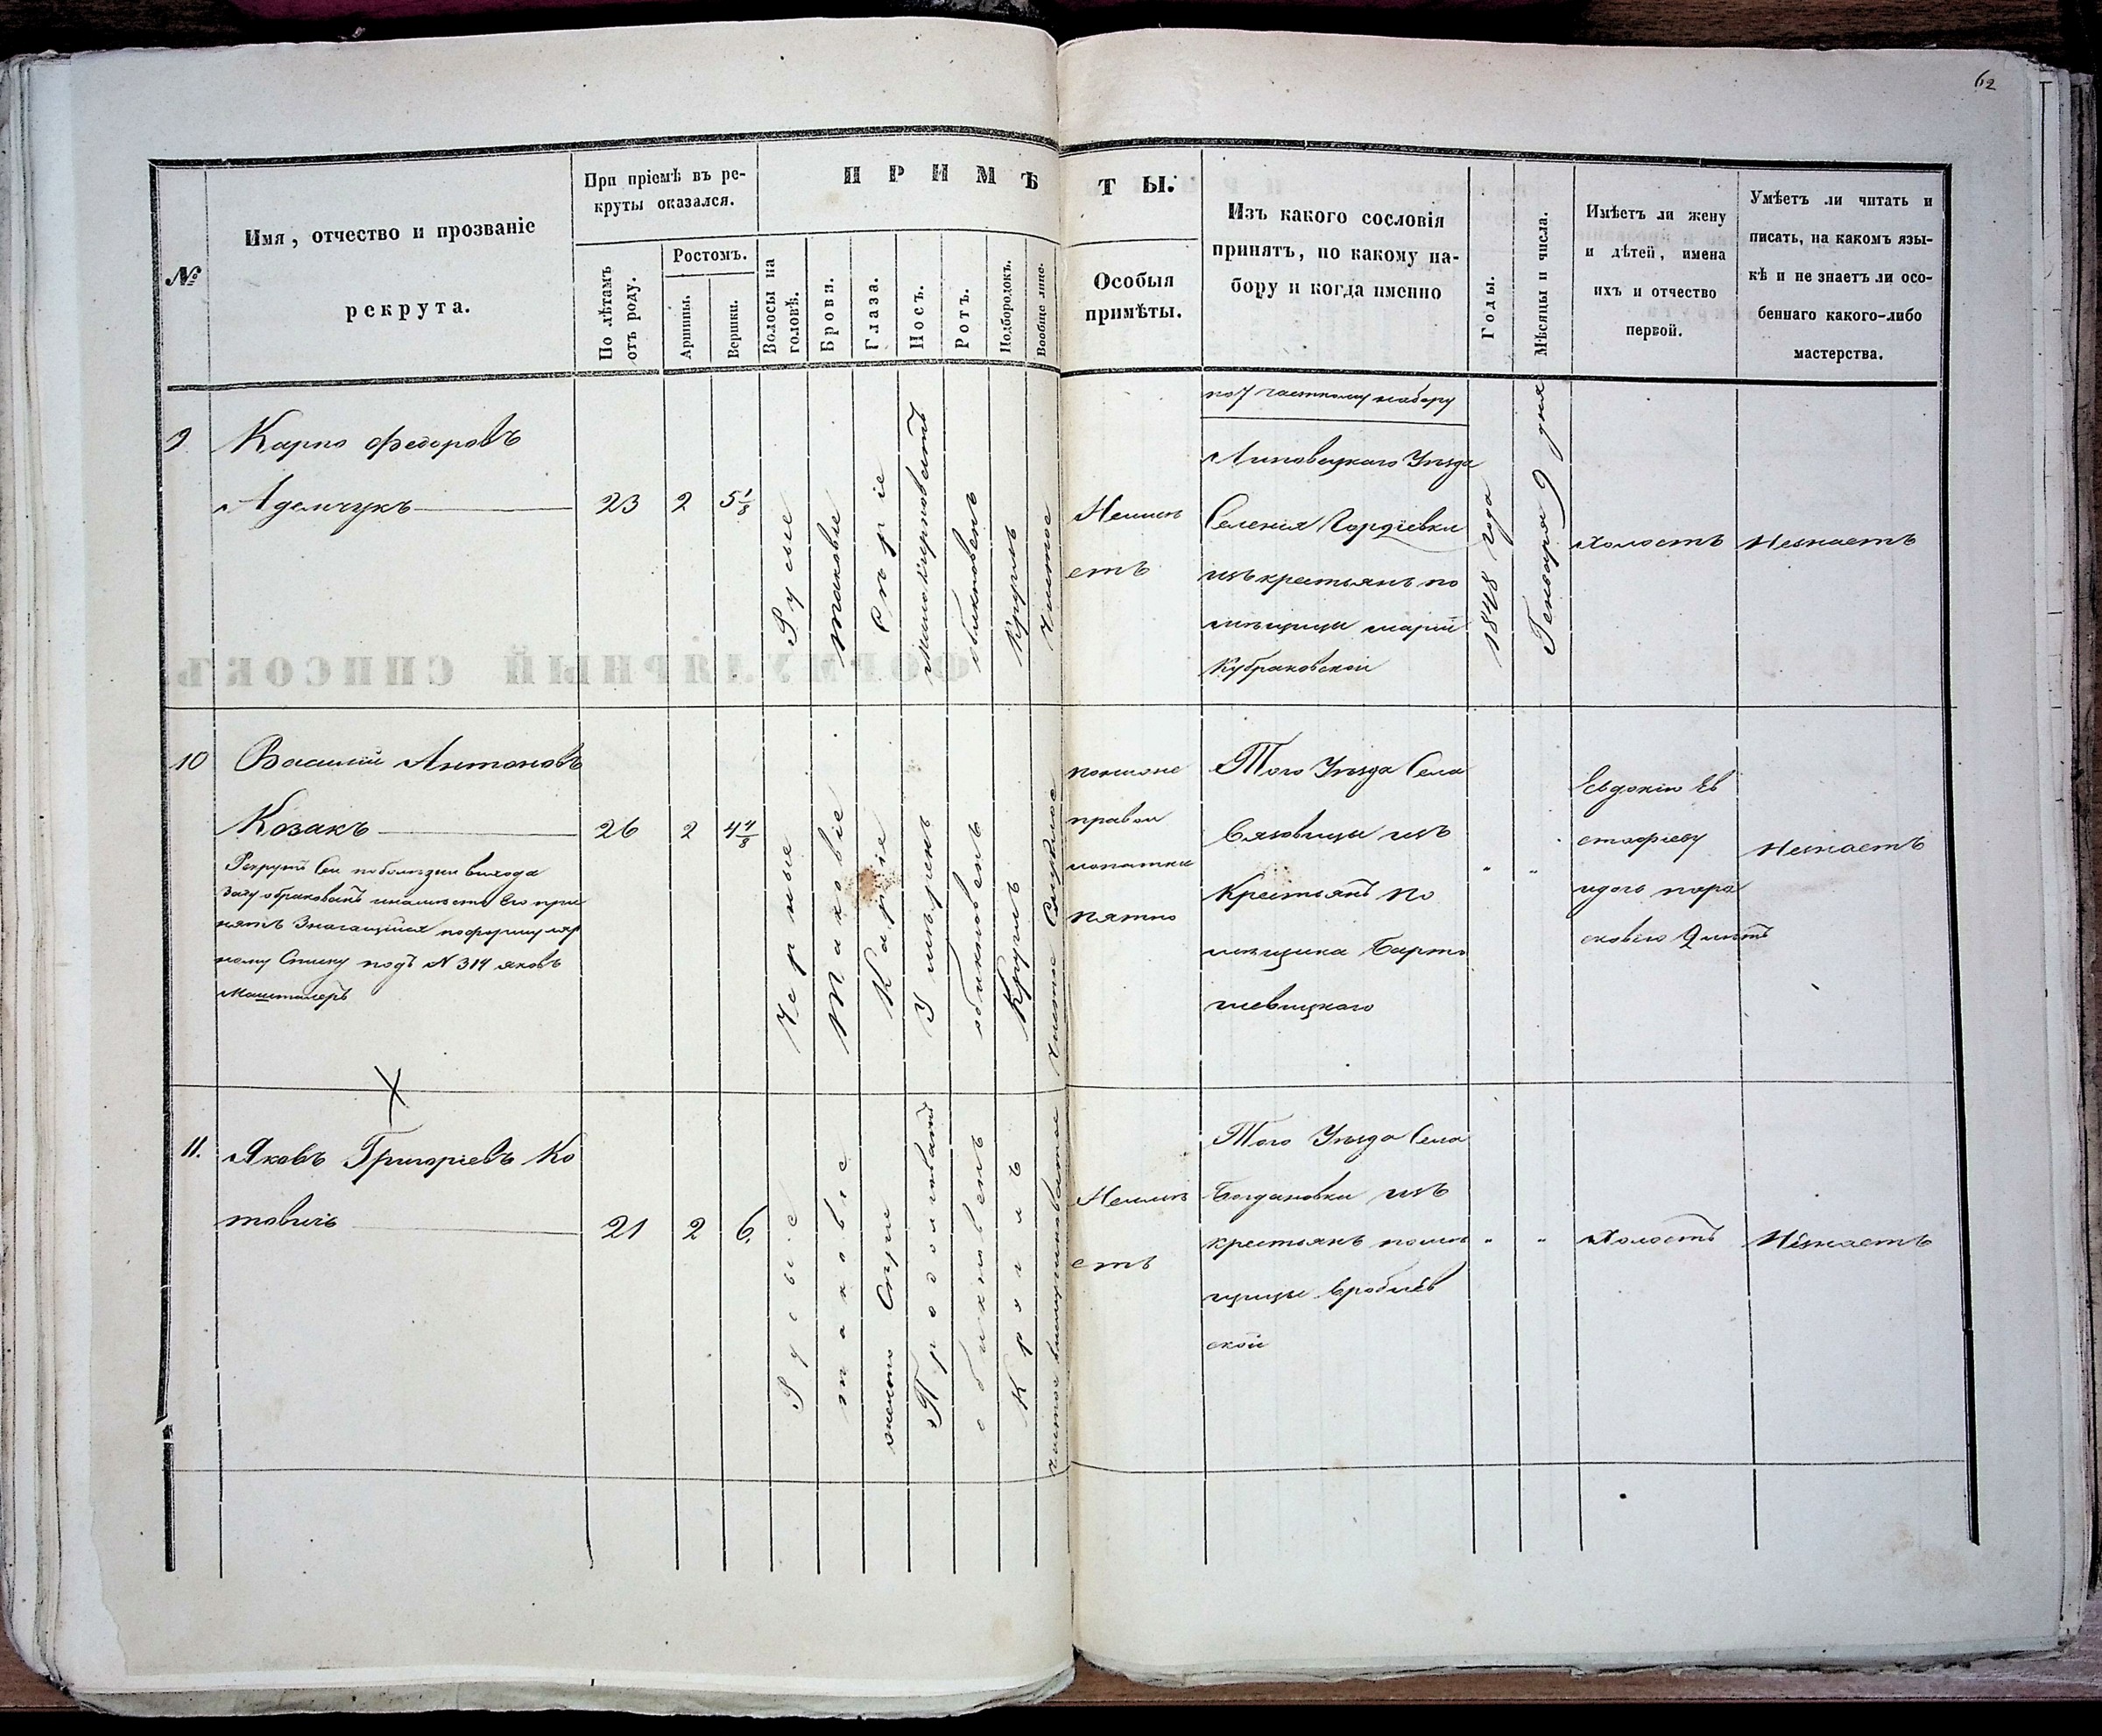 62
ПРИМѢТЫ.
№
Имя, отчество и прозваніе
рекрута.
При пріемѣ въ ре-
круты оказался.
По лѣтамъ
отъ роду.
Ростомъ.
Аршины.
Вершки.
Волосы на
головѣ.
Брови.
Глаза.
Носъ.
Ротъ.
Подбородокъ.
Вообще лице.
Особыя
примѣты.
Изъ какого сословія
принятъ, по какому на-
бору и когда именно
Годы.
Мѣсяцы и числа.
Имѣетъ ли жену
и дѣтей, имена
ихъ и отчество
первой.
Умѣетъ ли читать и
писать, на какомъ язы-
кѣ и не знаетъ ли осо-
беннаго какого-либо
мастерства.
9.
Карпо Федоровъ
Адемчукъ
23
2
5 1/8
Русые
таковые
Сѣріе
обикновенъ
Кругилъ
Чистое
Неимѣ
етъ
по 7 частному набору
Липовецкаго Уѣзда
Селенія Гордіевки
изъ крестьянъ по
мѣщици марій
Кубраковской
1848 года
Генваря 9 дня
Холостъ
Незнаетъ
10
Василій Антоновъ
Козакъ
Рекрутъ Сей поболѣзни
вмѣсто Его при
нятъ Значащійся поформуляр
ному Списку подъ N 314 яковъ
Машталеръ
26
2
4 4/8
Черные
Таковіе
Каріе
Умѣренъ
обикновенъ
Кругилъ
Чистое
правой
лопатки
пятно
Того Уѣзда Села
изъ
Крестьянъ По
мѣщика
"
"
Евдокію Ев
стафіеву
идочь пара
сковію 2 лѣтъ
Незнаетъ
11.
Яковъ Григоріевъ Ко
товичъ
21
2
6.
Русые
таковіе
жолто Сѣріе
Продолговатъ
обикновенъ
Круглъ
чистое
Неимѣ
етъ
Того Уѣзда Села
Богдановки изъ
крестьянъ помѣ
щицы
ской
"
"
Холостъ
Незнаетъ
ФОРМУЛЯРНЫЙ СПИСОКЪ